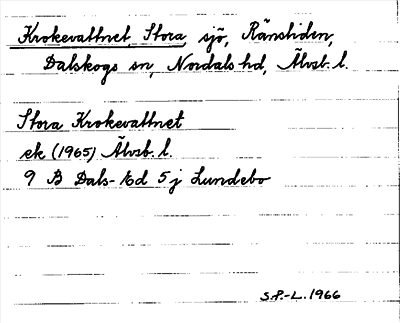 Krokevattnet, Stora, sjö, Ränsliden,
Dalskogs sn, Nordals hd, Älvsb. l.
Stora Krokevattnet
ek (1965) Älvsb. l.
9 B Dals-Ed 5 j Lundebo
S.P.-L. 1966